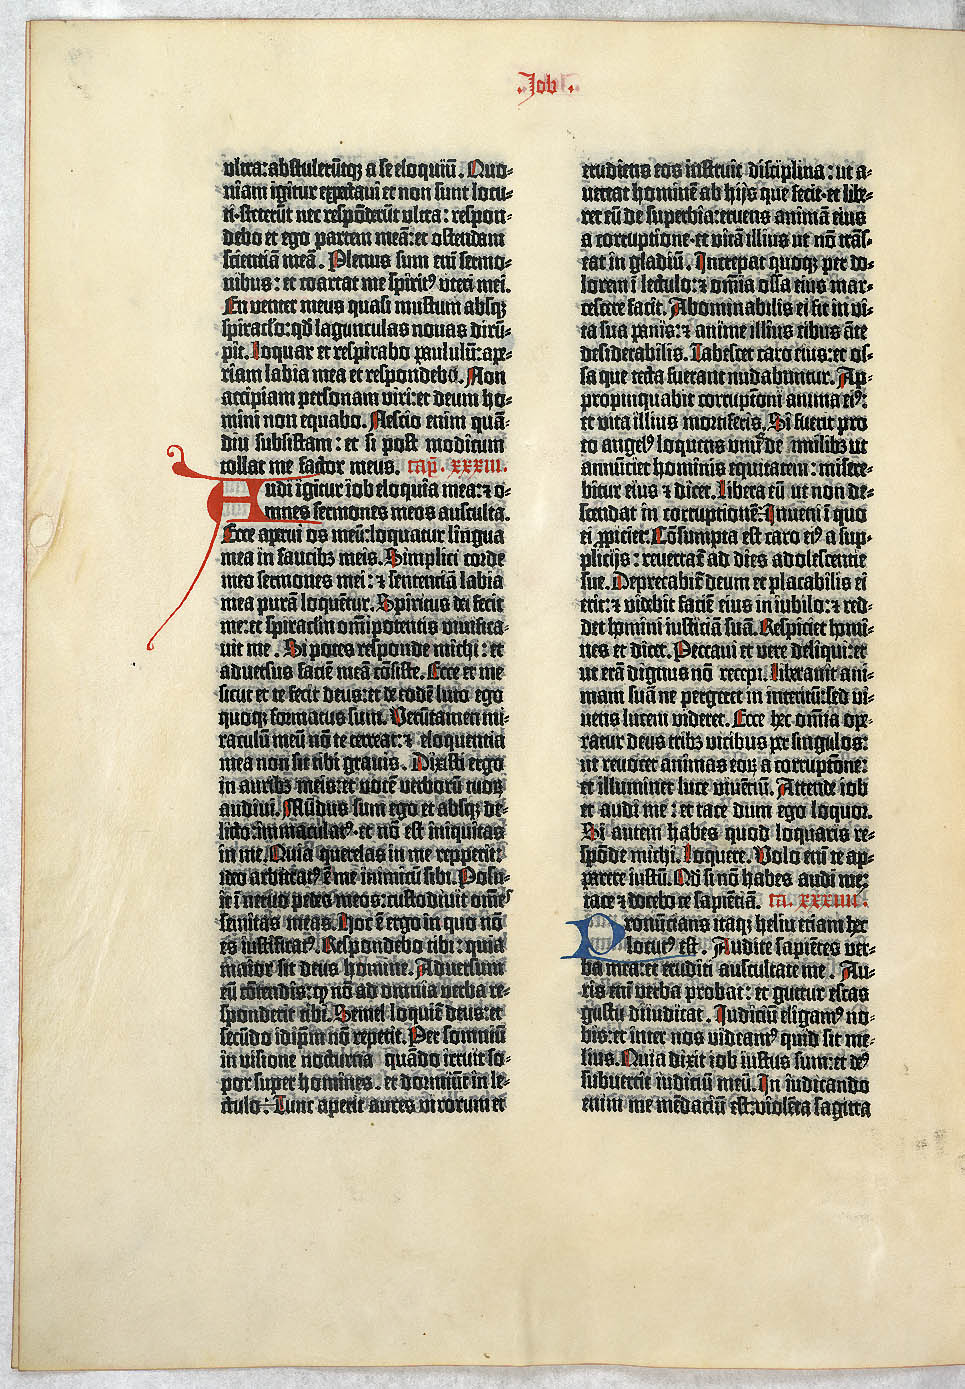 .Job.
ultra: abstulerūtq₃ a se eloquiū. Quo-
niam igitur expectavi et non sunt locu-
ti·steterūt nec respōderūt ultra: respon-
debo et ego partem meā: et ostendam
scientiā meā. Plenus sum eni sermo-
nibus: et coartat me spirit⁹ uteri mei.
En venter meus quasi mustum absq₃
spiraclo: qd̄ lagunculas novas dirū-
pit. Loquar et respirabo paululū: ape-
riam labia mea et respondebo. Non
accipiam personam viri: et deum ho-
mini non equabo. Nescio enim quā-
diu subsistam: et si post modicum
tollat me factor meus. cap̄. xxxiii.
Audi igitur iob eloquia mea: ⁊ o-
mnes sermones meos ausculta.
Ecce aperui os meū: loquatur lingua
mea in faucib₃ meis. Simplici corde
meo sermones mei: ⁊ sententiā labia
mea purā loquētur. Spiritus dei fecit
me: et spiraclm omīpotentis vivifica-
vit me. Si potes responde michi: et
adversus faciē meā cōsiste. Ecce et me
sicut et te fecit deus: et de eodē luto ego
quoq₃ formatus sum. Verūtamen mi-
raculū meū nō te terreat: ⁊ eloquentia
mea non sit tibi gravis. Dixisti ergo
in aurib₃ meis: et vocē verborū tuoꝝ
audivi. Mūdus sum ego et absq₃ de-
licto: immaculat⁹·et nō est iniquitas
in me. Quia querelas in me repperit:
ideo arbitrat⁹ ē me inimicū sibi. Posu-
it ī nervo pedes meos: custodivit omēs
semitas meas. Hoc ē ergo in quo nō
es iustificat⁹. Respondebo tibi: quia
maior sit deus homine. Adversum
eū cōtendis: ꝙ nō ad omnia verba re-
sponderit tibi. Semel loquit̄ deus: et
secūdo idip̄m nō repetit. Per somniū
in visione nocturna quādo irruit so-
por super homines·et dormiūt in le-
ctulo: Tunc aperit aures virorum et
erudiens eos instruit disciplina: ut a-
vertat hominē ab hijs que fecit·et libe-
ret eū de superbia: eruens animā eius
a corruptione·et vitā illius ut nō trās-
eat in gladiū. Increpat quoq₃ per do-
lorem ī lectulo: ⁊ omīa ossa eius mar-
cescere facit. Abominabilis ei fit in vi-
ta sua panis: ⁊ anime illius cibus āte
desiderabilis. Tabescet caro eius: et os-
sa que tecta fuerant nudabuntur. Ap-
propinquabit corruptōni anima ei⁹:
et vita illius mortiferis. Si fuerit pro
eo angel⁹ loquens unū de milib₃ ut
annūciet hominis equitatem: misere-
bitur eius ⁊ dicet. Libera eū ut non de-
scendat in corruptionē: Inveni ī quo
ei ꝓpiciet̄. Cōsumpta est caro ei⁹ a sup-
plicijs: revertat̄ ad dies adolescentie
sue. Deprecabit̄ deum et placabilis ei
erit: ⁊ videbit faciē eius in iubilo: ⁊ red-
det homini iusticiā suā. Respiciet homi-
nes et dicet. Peccavi et vere deliqui: et
ut erā dignus nō recepi. Liberavit ani-
mam suā ne pergeret in interitū: sed vi-
vens lucem videret. Ecce hec omīa ope-
ratur deus trib₃ vicibus per singulos:
ut revocet animas eoꝝ a corruptōne:
et illuminet luce vivētiū. Attende iob
et audi me: et tace dum ego loquor.
Si autem habes quod loquaris re-
spōde michi. Loquere. Volo enī te ap-
parere iustū. Qd̄ si nō habes audi me:
tace ⁊ docebo te sapiētiā. ca. xxxiiii.
Pronūcians itaq₃ heliu etiam hec
locut⁹ est. Audite sapiētes ver-
ba mea: et eruditi auscultate me. Au-
ris enī verba probat: et guttur escas
gustu diiudicat. Iudiciū eligam⁹ no-
bis: et inter nos videam⁹ quid sit me-
lius. Quia dixit iob iustus sum: et de⁹
subvertit iudiciū meū. In iudicando
enim me mēdaciū est: violēta sagitta